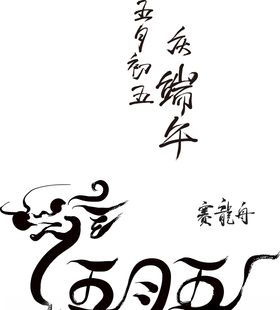 五月初五
庆端午
赛龍舟
五月五